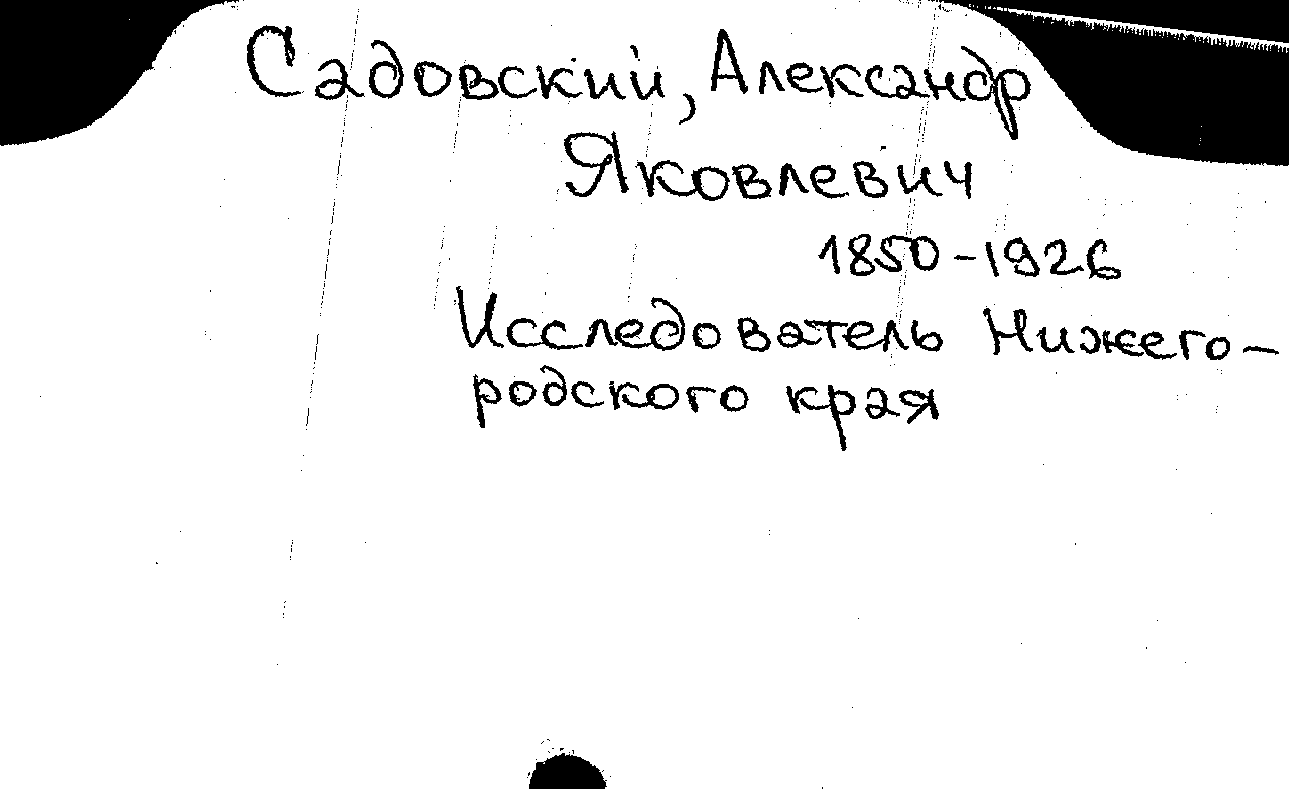 Садовский, Александр
Яковлевич
1850-1926
Исследователь Нижего-
родского края